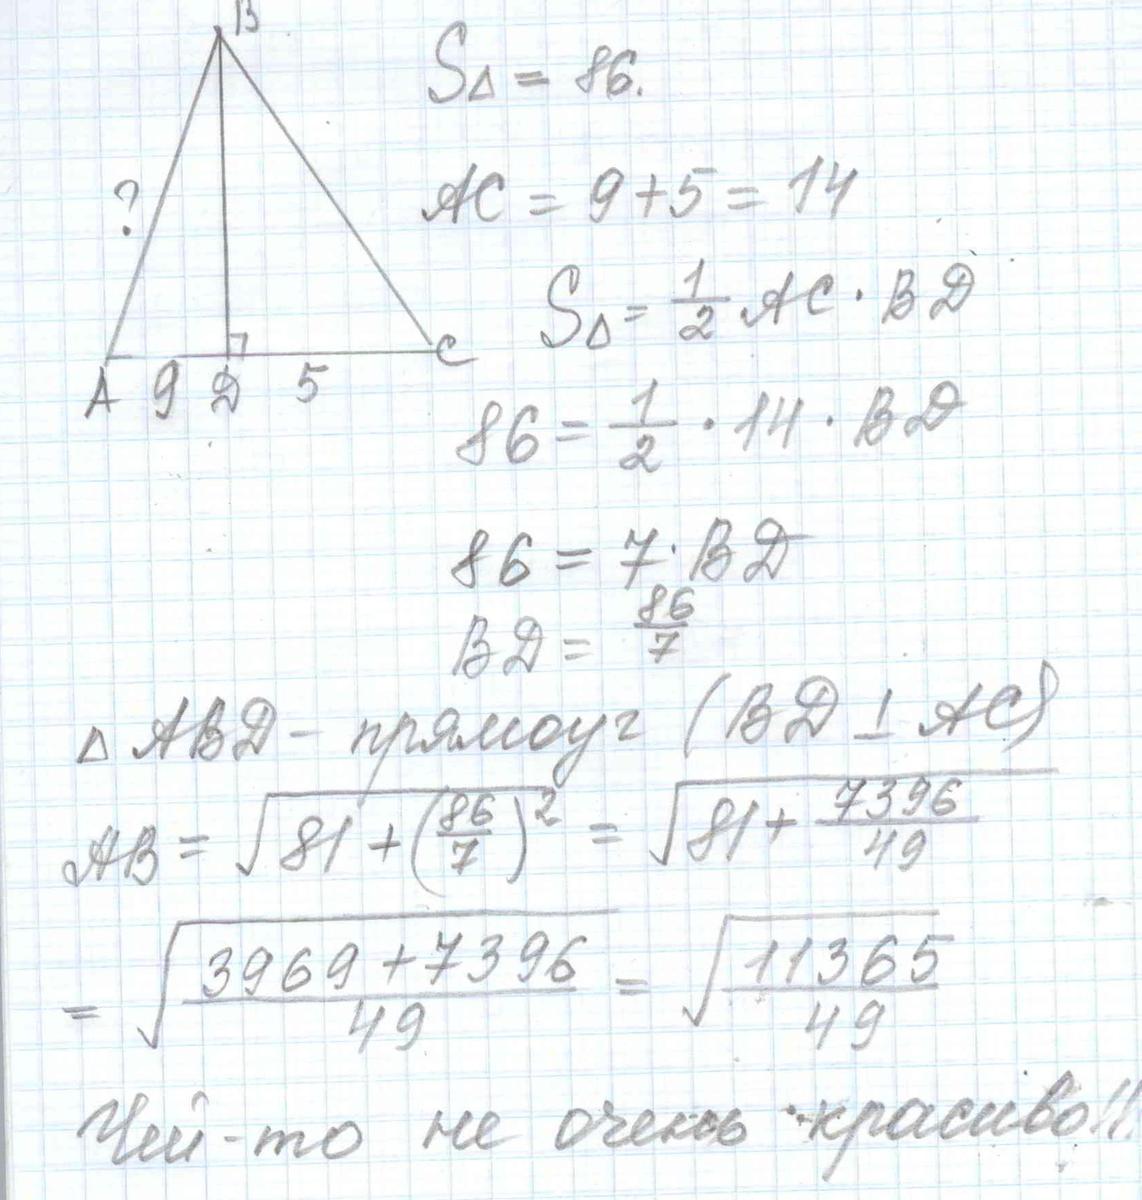 B
S△ = 86.
?
AC = 9+5 = 14
S△ = 1/2 AC · BD
A 9 D 5 C
86 = 1/2 · 14 · BD
86 = 7 · BD
BD = 86/7
△ ABD - прямоуг (BD ⊥ AC)
AB = √(81 + (86/7)²) = √(81 + 7396/49)
= √((3969 + 7396)/49) = √(11365/49)
Чей-то не очень красиво!!!